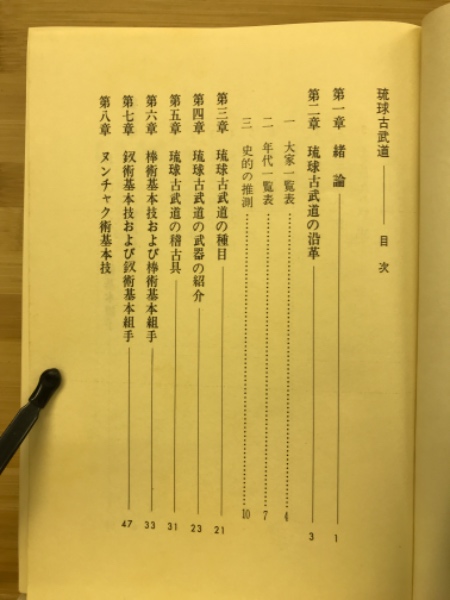 琉球古武道――目次
第一章 緒論――1
第二章 琉球古武道の沿革――3
一 大家一覧表……4
二 年代一覧表……7
三 史的の推測……10
第三章 琉球古武道の種目――21
第四章 琉球古武道の武器の紹介――23
第五章 琉球古武道の稽古具――31
第六章 棒術基本技および棒術基本組手――33
第七章 釵術基本技および釵術基本組手――47
第八章 ヌンチャク術基本技